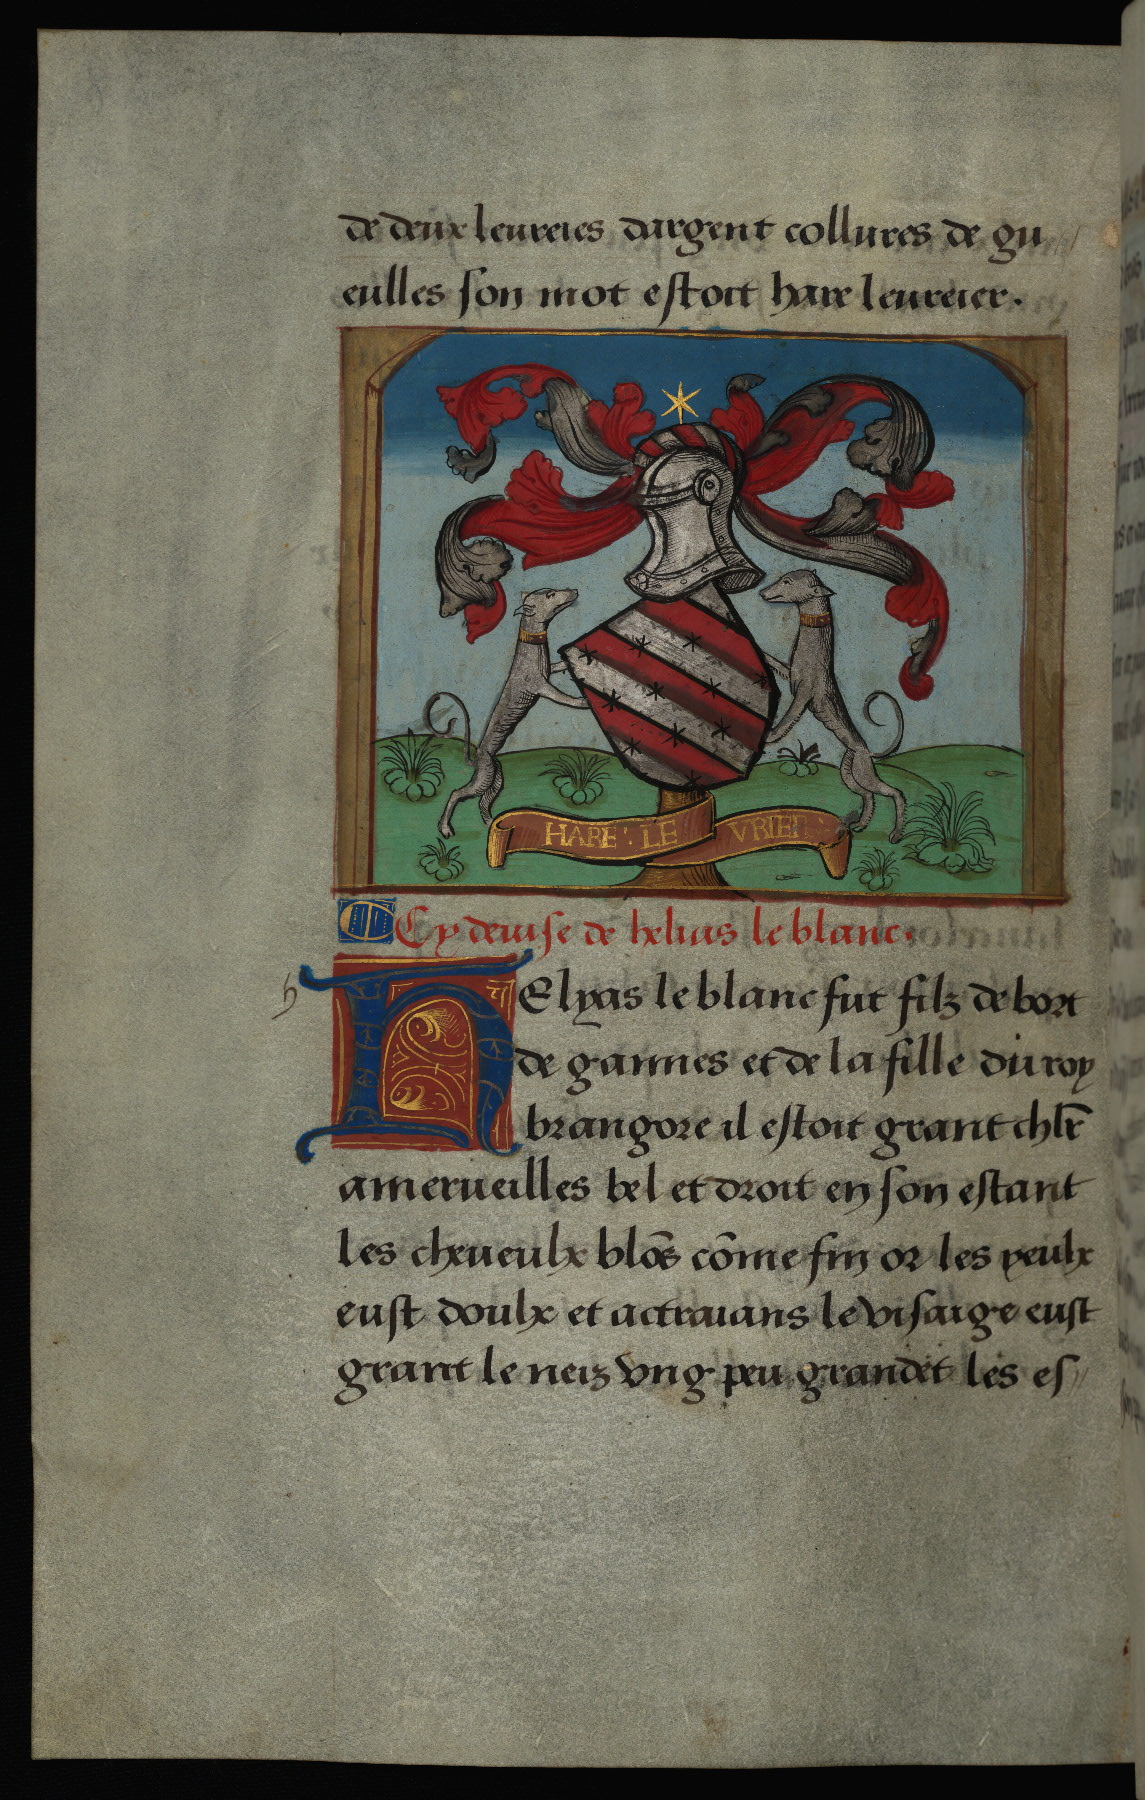 de deux leureies dargent collures de gu
eulles son mot estoit hare leureier.
HARE : LE VRIER
Cy deuise de helias le blanc.
h
HElyas le blanc fut filz de bort
de gannes et de la fille du roy
brangore il estoit grant chlr̄
amerueilles bel et droit en son estant
les cheueulx blōs cōme fin or les yeulx
eust doulx et actraians le visaige eust
grant le neiz vng peu grandet les es